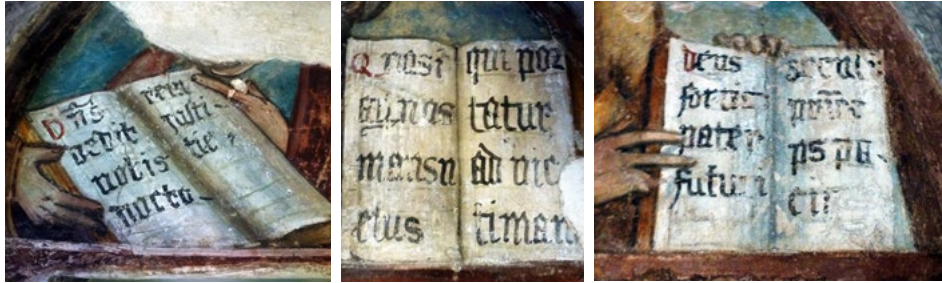 Dn̄s
dedit
nobis
docto-
rem
justi-
tie
Quasi
agnus
mansu
etus
qui por
tatur
ad vic
timam
Deus
fortis
pater
futuri
seculi
ps pa-